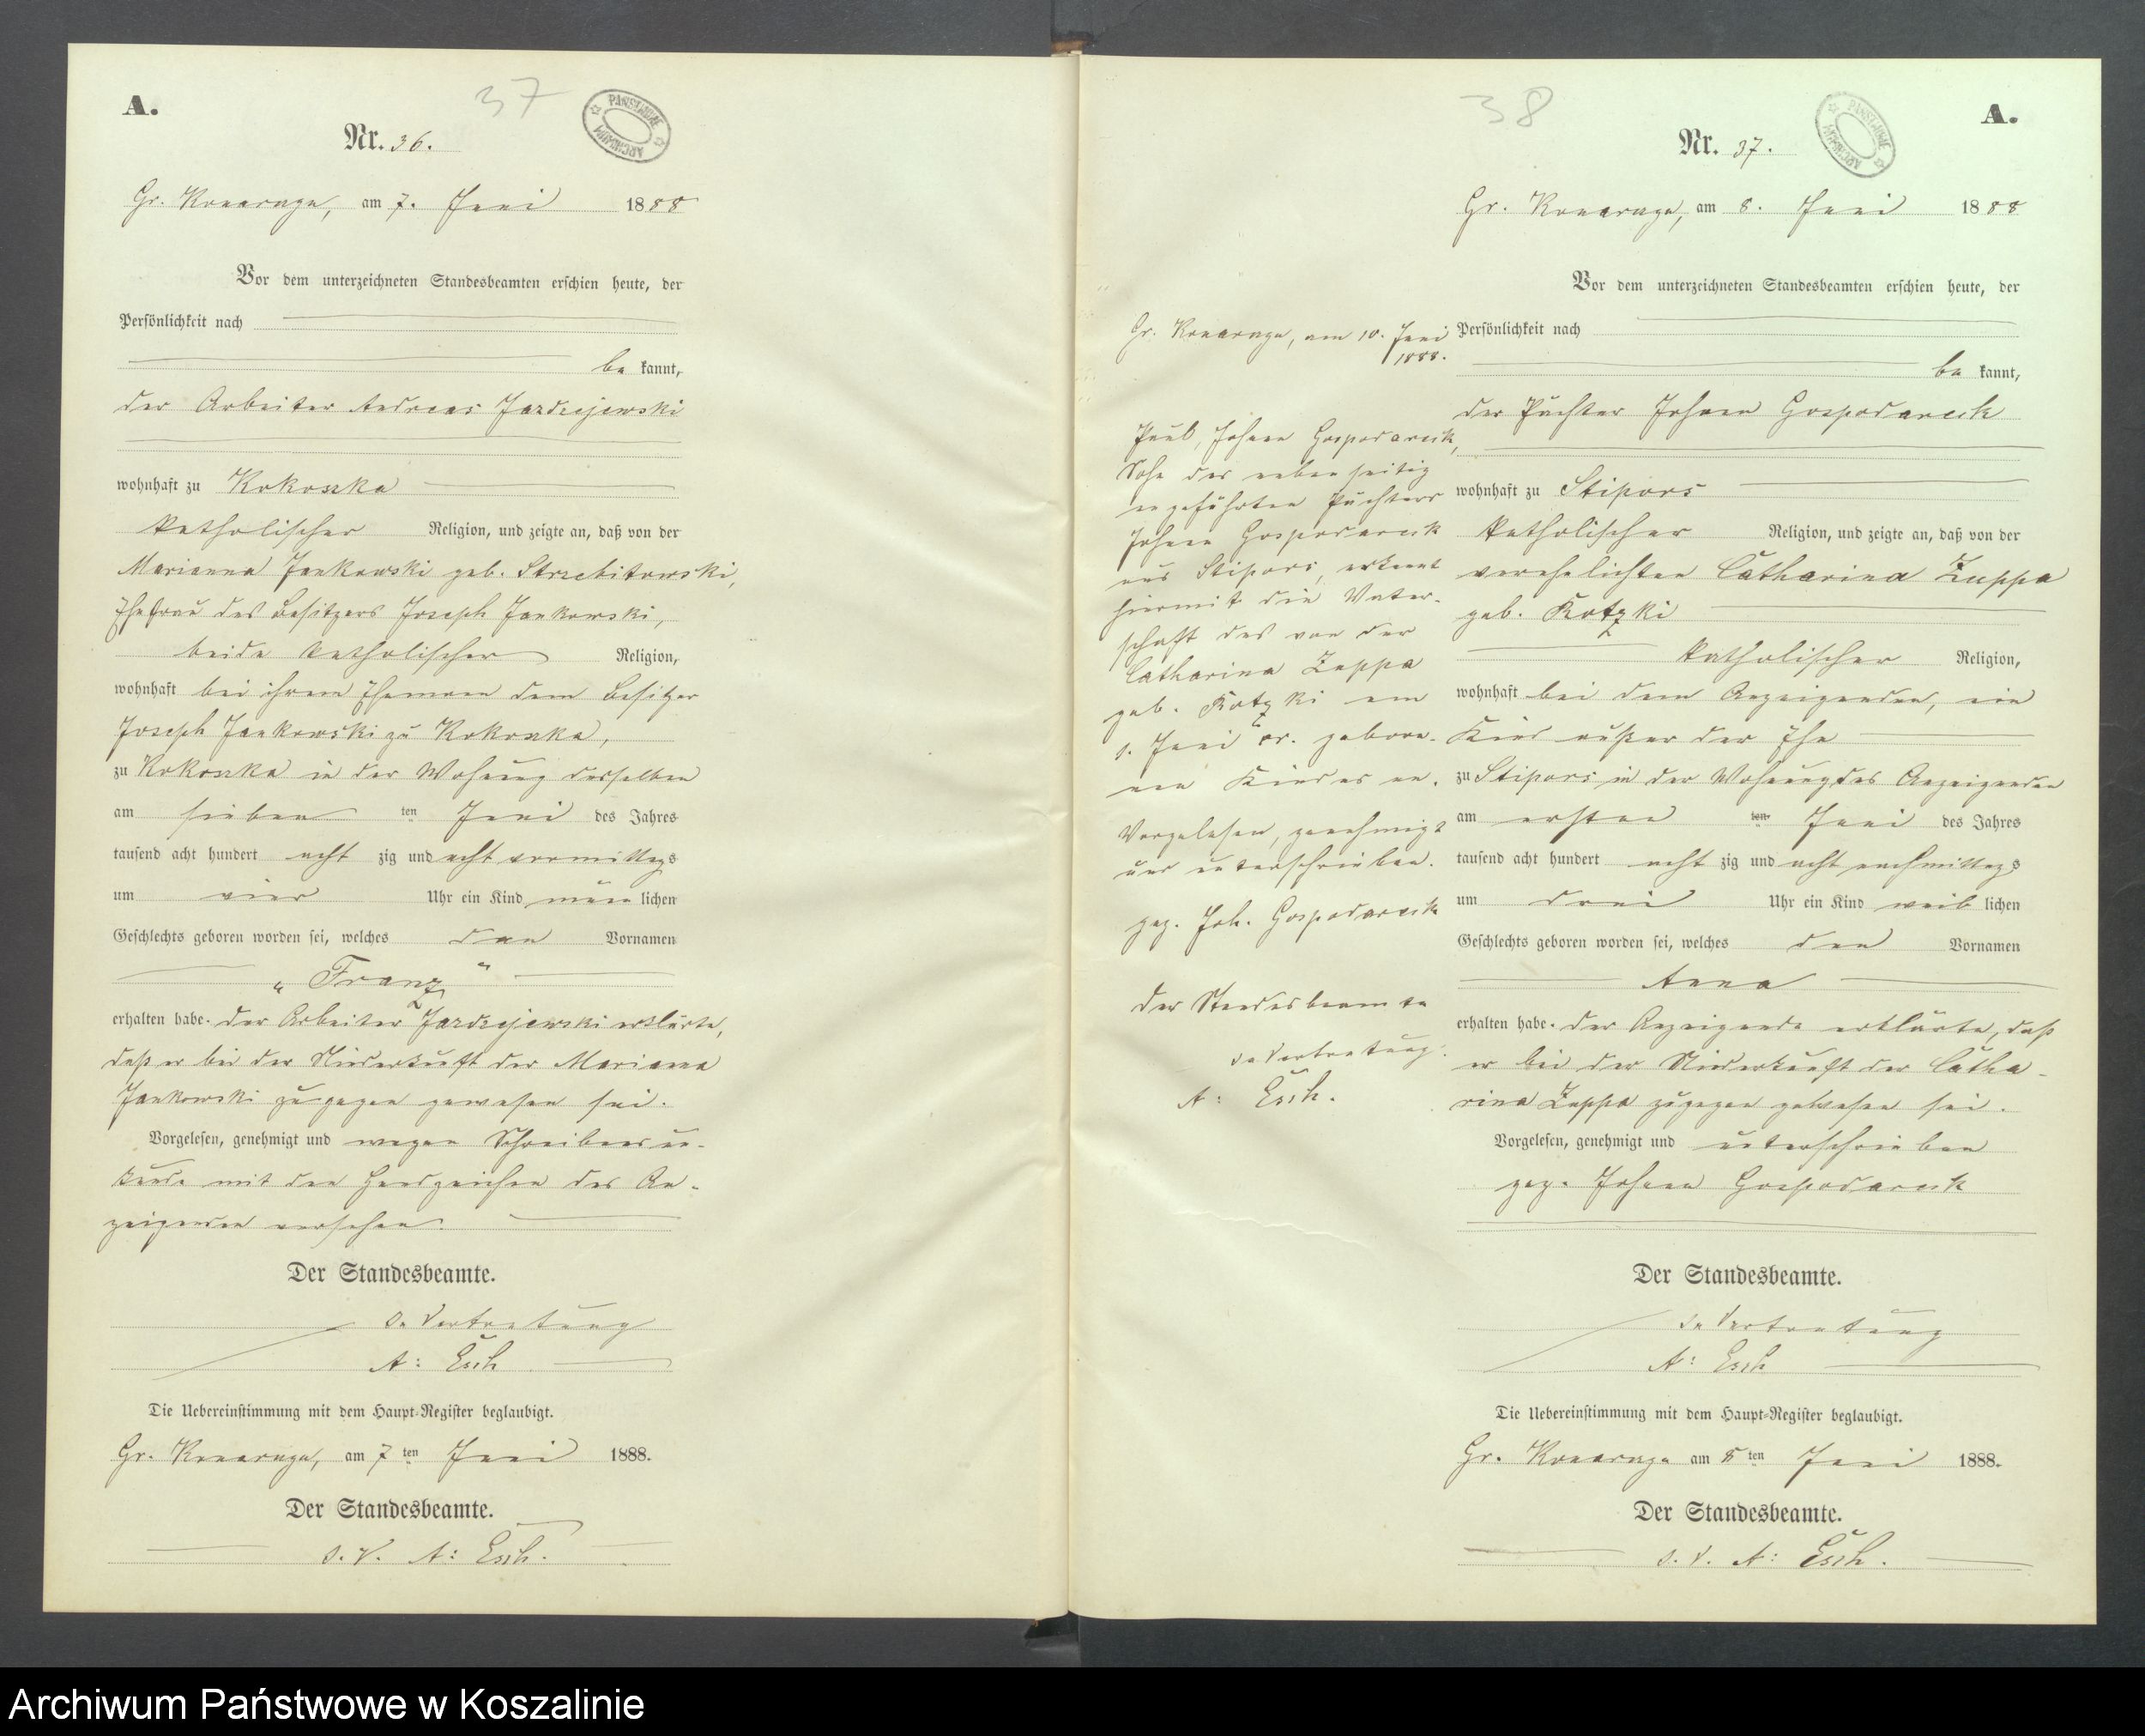 A.
37
PAŃSTWOWE ARCHIWUM
Nr. 36.
Gr. Konarczyn, am 7. Juni 1888
Vor dem unterzeichneten Standesbeamten erschien heute, der
Persönlichkeit nach
be kannt,
der Arbeiter Andreas Jazdzejewski
wohnhaft zu Kokoszka
katholischer Religion, und zeigte an, daß von der
Marianna Jankowski geb. Strzebitowski,
Ehefrau des Besitzers Joseph Jankowski,
beide katholischer Religion,
wohnhaft bei ihrem Ehemann dem Besitzer
Joseph Jankowski zu Kokoszka,
zu Kokoszka in der Wohnung desselben
am sieben ten Juni des Jahres
tausend acht hundert acht zig und acht vormittags
um vier Uhr ein Kind männ lichen
Geschlechts geboren worden sei, welches den Vornamen
"Franz"
erhalten habe. Der Arbeiter Jazdzejewski erklärte,
daß er bei der Niederkunft der Marianna
Jankowski zugegen gewesen sei.
Vorgelesen, genehmigt und wegen Schreibensun-
kunde mit den Handzeichen des An-
zeigenden versehen.
Der Standesbeamte.
In Vertretung
A: Esch
Die Uebereinstimmung mit dem Haupt-Register beglaubigt.
Gr. Konarczyn, am 7 ten Juni 1888.
Der Standesbeamte.
I. V. A: Esch.
38
PAŃSTWOWE ARCHIWUM
A.
Nr. 37.
Gr. Konarczyn, am 8. Juni 1888
Vor dem unterzeichneten Standesbeamten erschien heute, der
Persönlichkeit nach
be kannt,
der Pächter Johann Gospodareck
wohnhaft zu Stipors
katholischer Religion, und zeigte an, daß von der
verehelichten Catharina Zuppa
geb. Kotzki
katholischer Religion,
wohnhaft bei dem Anzeigenden, ein
Kind außer der Ehe
zu Stipors in der Wohnung des Anzeigenden
am ersten ten Juni des Jahres
tausend acht hundert acht zig und acht nachmittags
um drei Uhr ein Kind weib lichen
Geschlechts geboren worden sei, welches den Vornamen
Anna
erhalten habe. Der Anzeigende erklärte, daß
er bei der Niederkunft der Catha-
rina Zuppa zugegen gewesen sei.
Vorgelesen, genehmigt und unterschrieben
gez. Johann Gospodareck
Der Standesbeamte.
In Vertretung
A: Esch
Die Uebereinstimmung mit dem Haupt-Register beglaubigt.
Gr. Konarczyn am 8 ten Juni 1888.
Der Standesbeamte.
I. V. A: Esch.
Gr. Konarczyn, am 10. Juni
1888.
Johann Gospodareck,
Sohn des nebenseitig
angeführten Pächters
Johann Gospodareck
aus Stipors, erkennt
hiermit die Vater-
schaft des von der
Catharina Zuppa
geb. Kotzki am
1. Juni cr. gebore-
nen Kindes an.
Vorgelesen, genehmigt
und unterschrieben.
gez. Joh. Gospodareck
Der Standesbeamte
In Vertretung.
A: Esch.
Archiwum Państwowe w Koszalinie